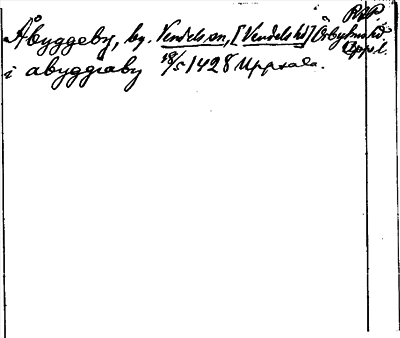 RAP
Åbyggeby, by. Vendels sn, [Vendels hd] Örbyhus hd.
Uppl.
i abyggiaby 18/5 1428 Uppsala.